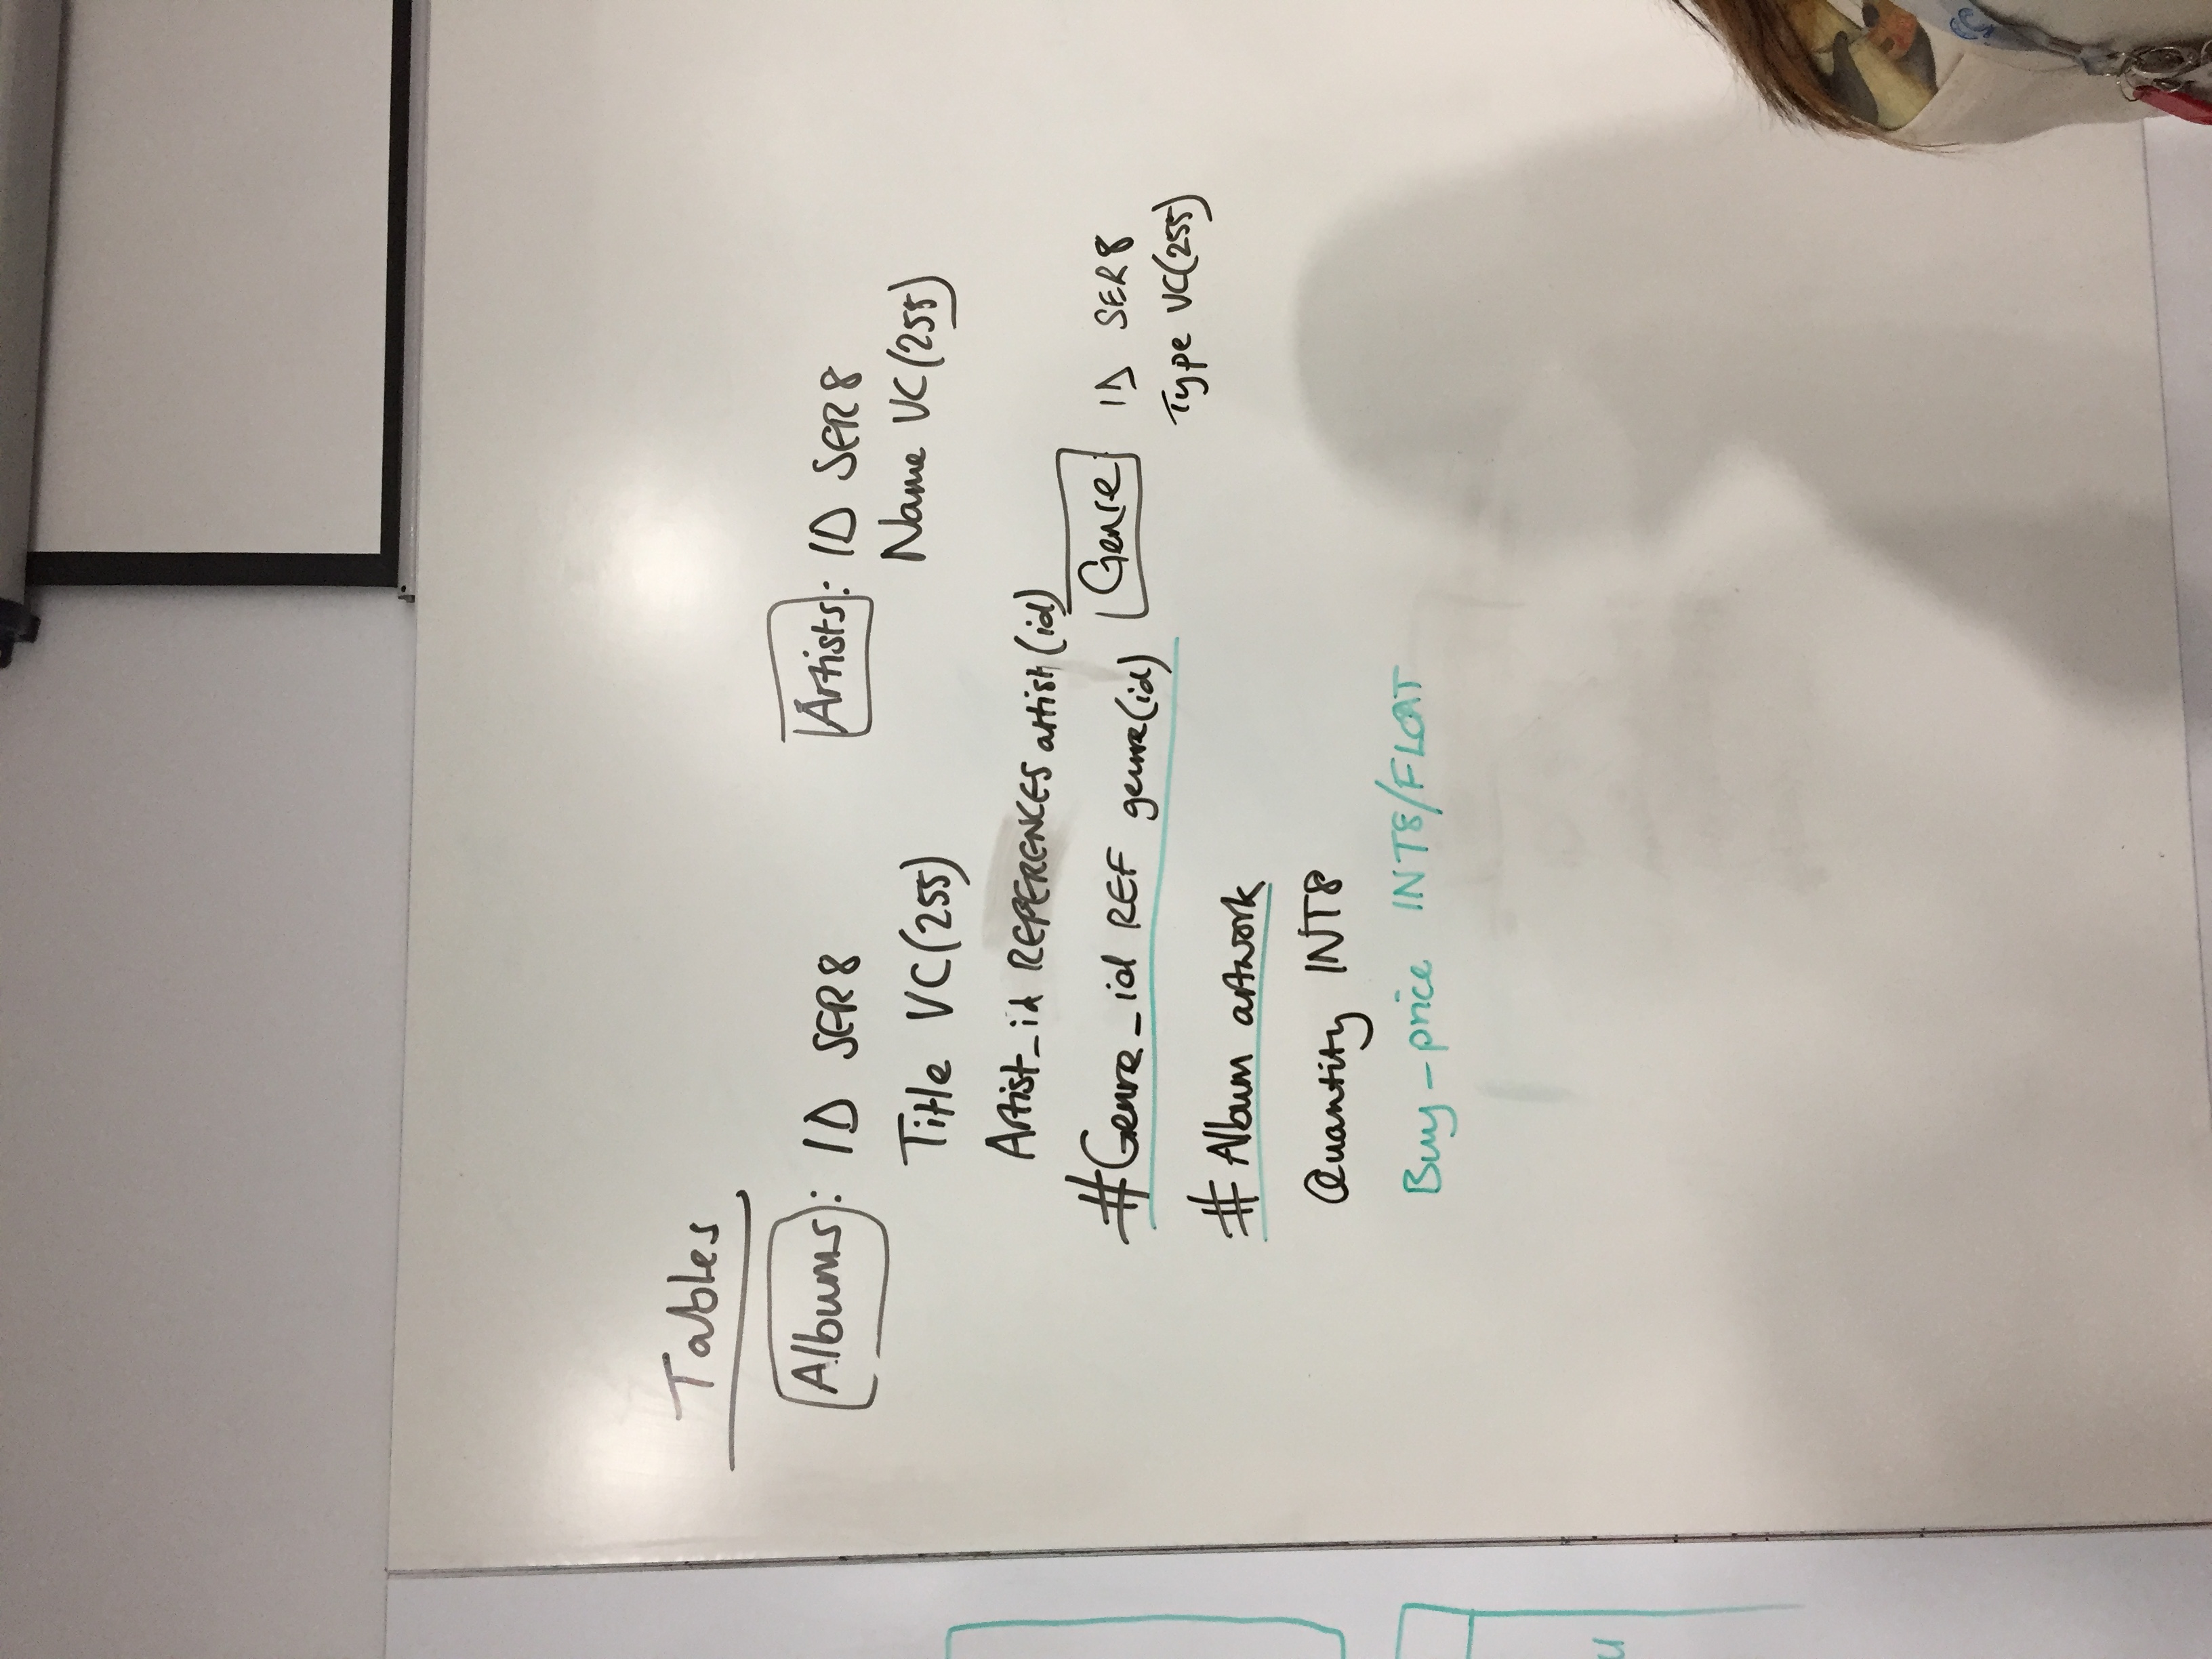 Tables
Albums: ID SER8
Title VC(255)
Artist_id REFERENCES artist(id)
#Genre_id REF genre(id)
# Album artwork
Quantity INT8
Buy_price INT8/FLOAT
Artists: ID SER8
Name VC(255)
Genre: ID SER8
Type VC(255)